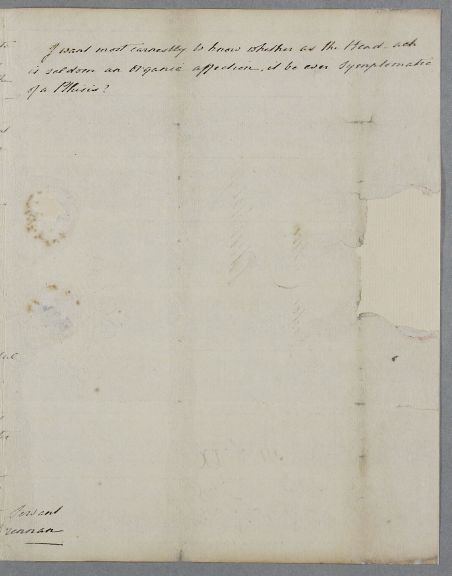 I want most earnestly to know whether as the Head-ach
is seldom an Organic affection, it be ever Symptomatic
of a Pthisis?
Servant